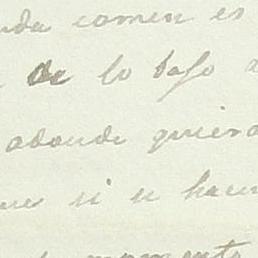 nda comen es
de lo bajo a
adonde quiera
ues si se hacen
momento